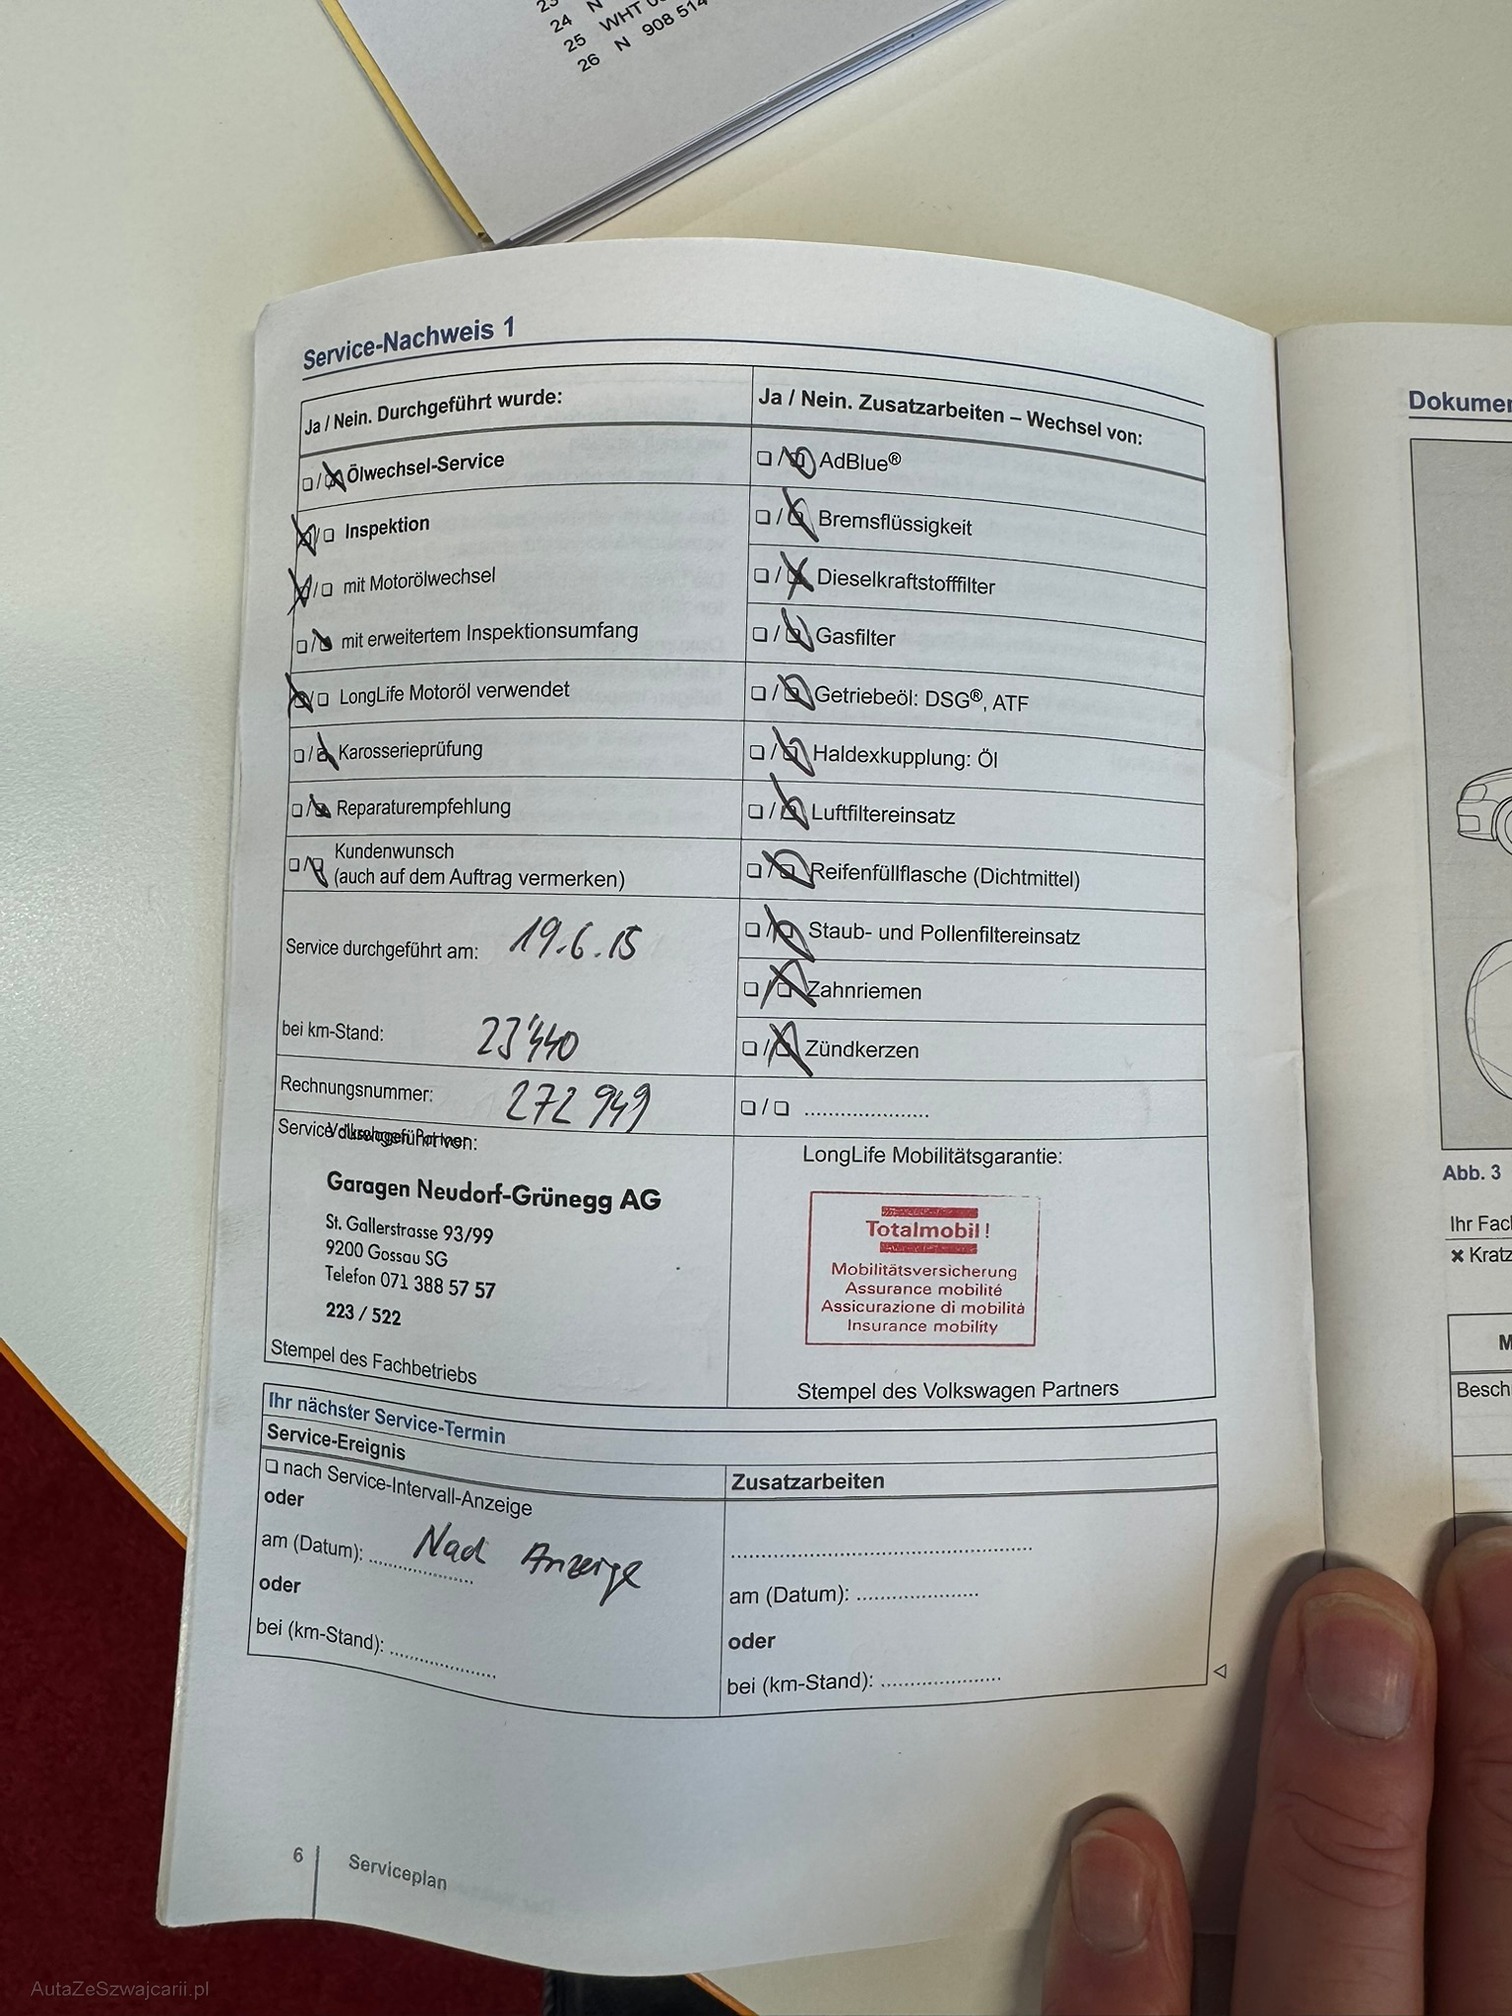 24 N
25 WHT
26 N 908 514
Service-Nachweis 1
Ja / Nein. Durchgeführt wurde:
❏ / ❏ Ölwechsel-Service
❏ / ❏ Inspektion
❏ / ❏ mit Motorölwechsel
❏ / ❏ mit erweitertem Inspektionsumfang
❏ / ❏ LongLife Motoröl verwendet
❏ / ❏ Karosserieprüfung
❏ / ❏ Reparaturempfehlung
❏ / ❏ Kundenwunsch
(auch auf dem Auftrag vermerken)
Service durchgeführt am: 19.6.15
bei km-Stand: 23'440
Rechnungsnummer: 272 949
Service durchgeführt von:
Volkswagen Partner
Garagen Neudorf-Grünegg AG
St. Gallerstrasse 93/99
9200 Gossau SG
Telefon 071 388 57 57
223 / 522
Stempel des Fachbetriebs
Ja / Nein. Zusatzarbeiten – Wechsel von:
❏ / ❏ AdBlue®
❏ / ❏ Bremsflüssigkeit
❏ / ❏ Dieselkraftstofffilter
❏ / ❏ Gasfilter
❏ / ❏ Getriebeöl: DSG®, ATF
❏ / ❏ Haldexkupplung: Öl
❏ / ❏ Luftfiltereinsatz
❏ / ❏ Reifenfüllflasche (Dichtmittel)
❏ / ❏ Staub- und Pollenfiltereinsatz
❏ / ❏ Zahnriemen
❏ / ❏ Zündkerzen
❏ / ❏ .....................
LongLife Mobilitätsgarantie:
Totalmobil!
Mobilitätsversicherung
Assurance mobilité
Assicurazione di mobilità
Insurance mobility
Stempel des Volkswagen Partners
Ihr nächster Service-Termin
Service-Ereignis
❏ nach Service-Intervall-Anzeige
oder
am (Datum): Nach Anzeige
oder
bei (km-Stand): ..................
Zusatzarbeiten
..................................................
am (Datum): ....................
oder
bei (km-Stand): ....................
6 Serviceplan
Dokumen
Abb. 3
Ihr Fac
✖ Kratz
M
Besch
AutaZeSzwajcarii.pl